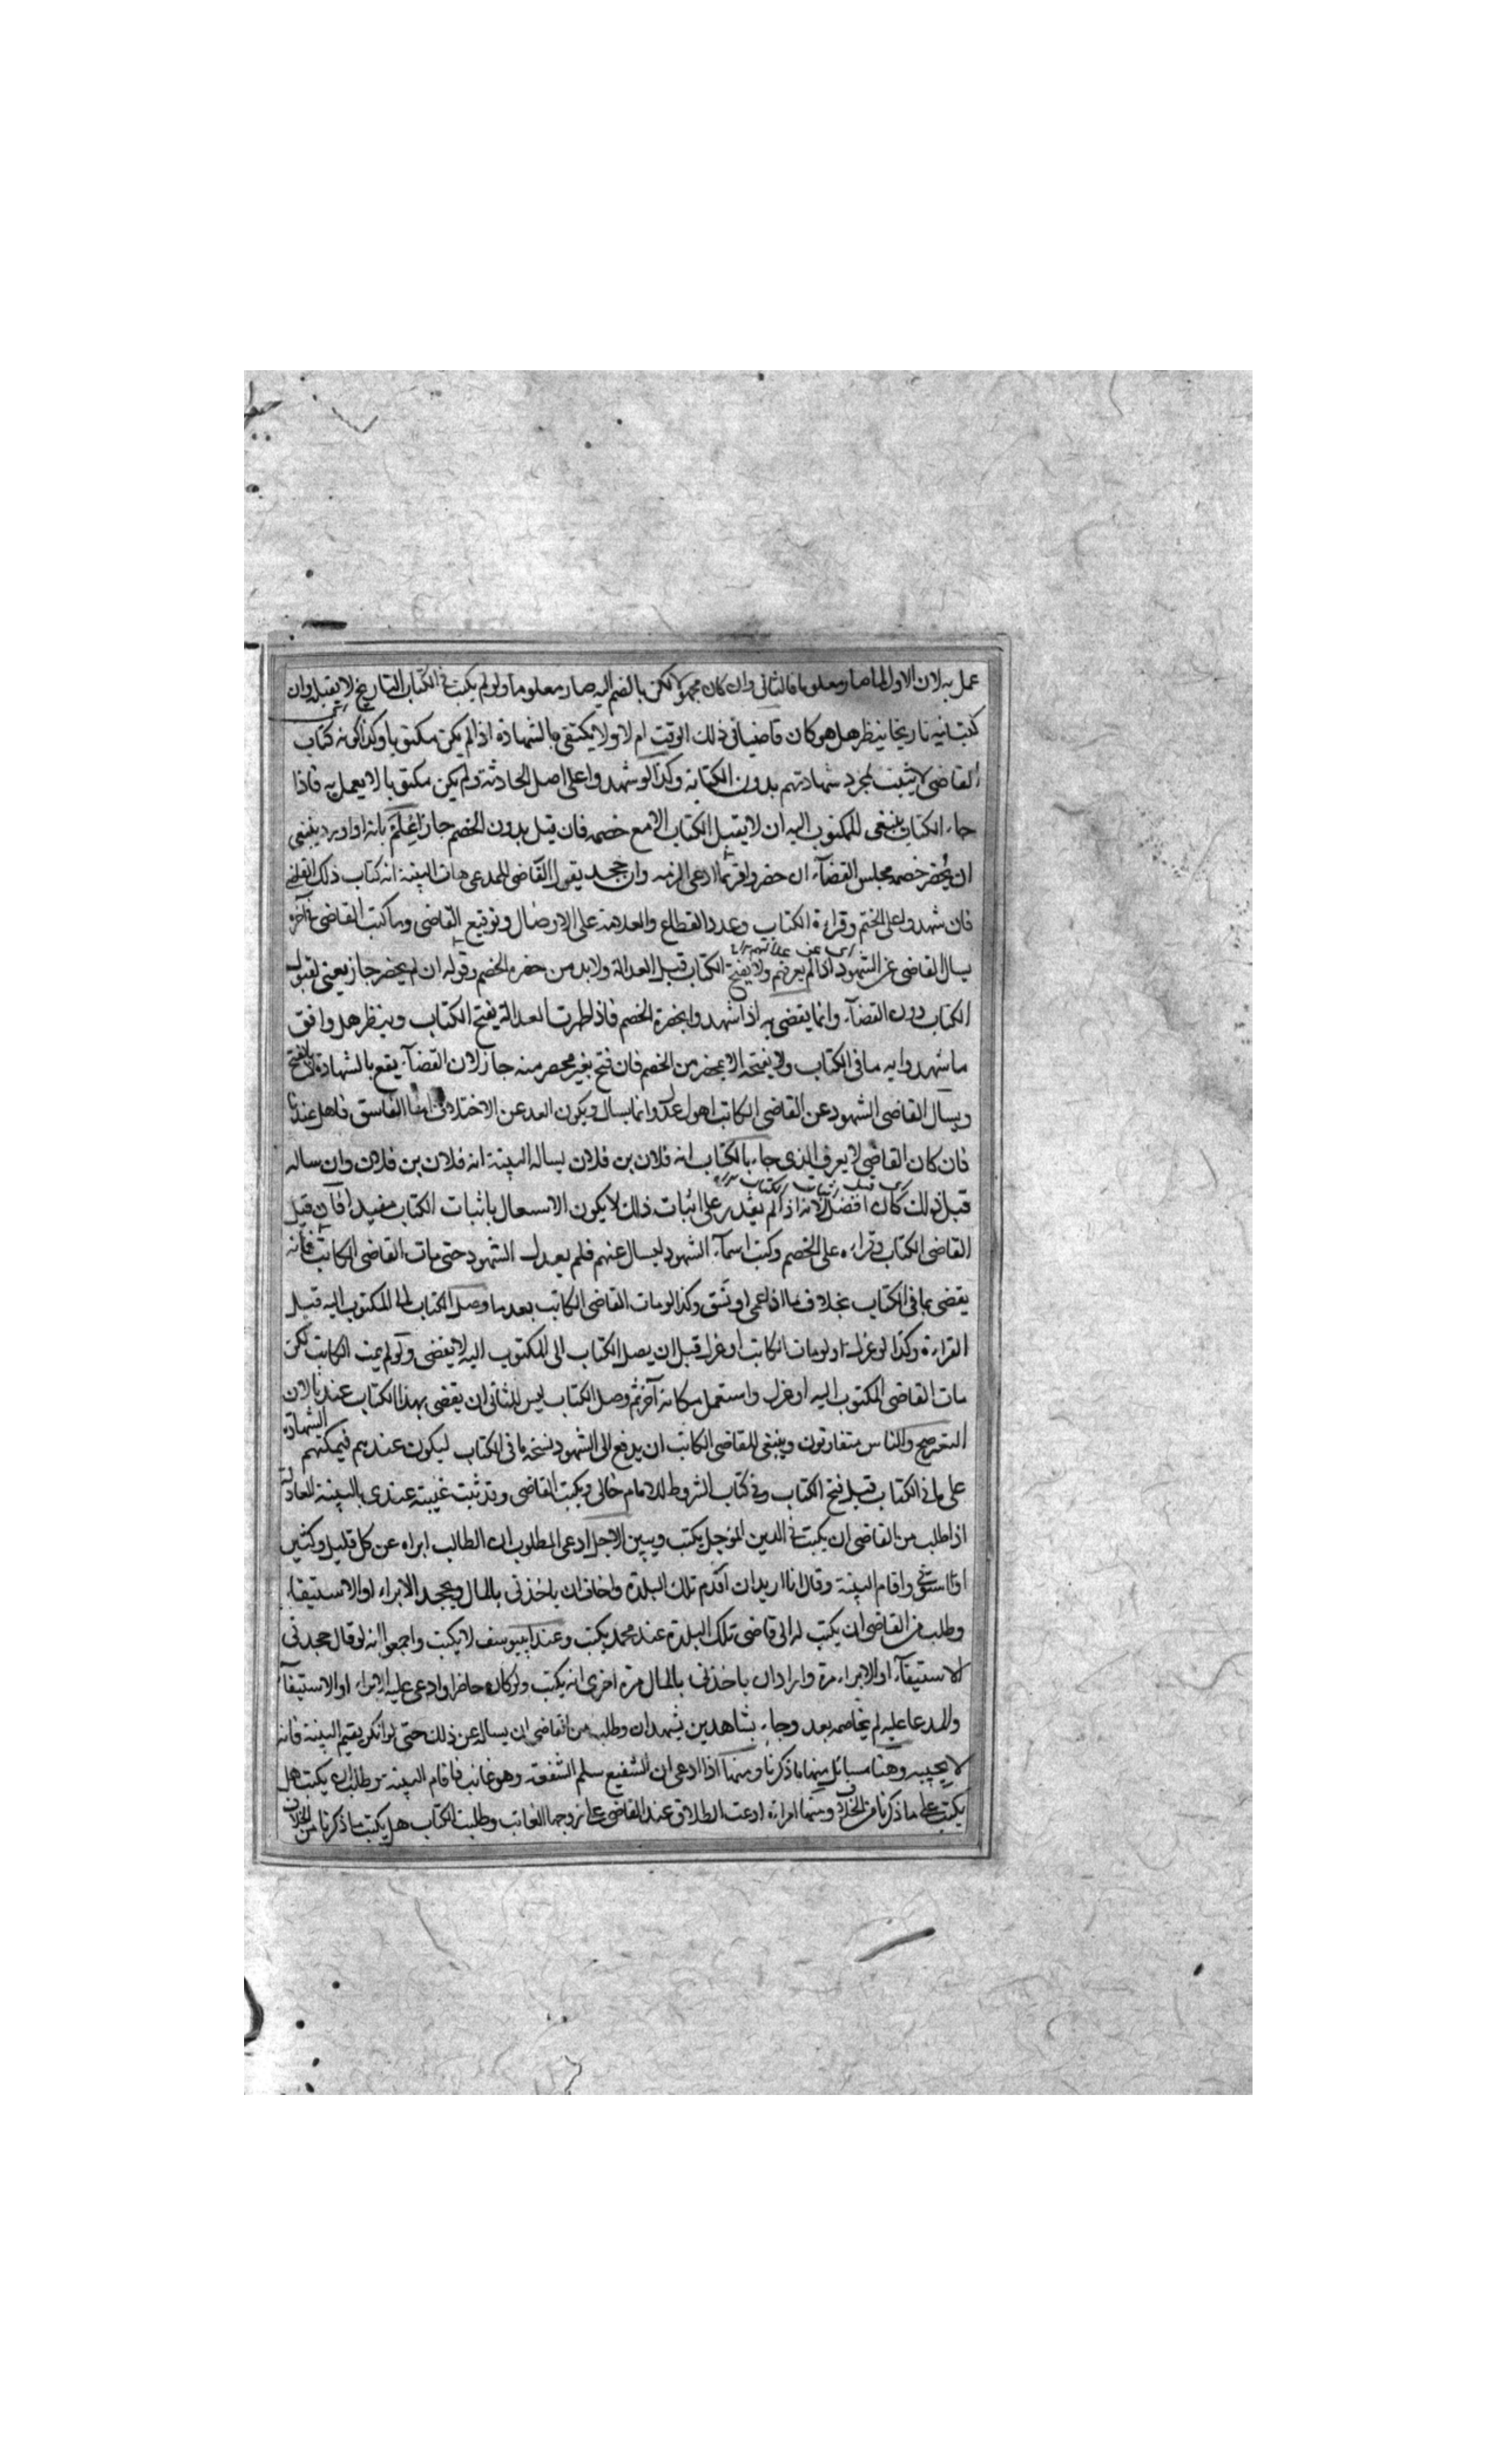 عمل به لان الاول لما صار معلوما فالثانى وان كان مجهولا لكن بالضم اليه صار معلوما ولو لم يكتب فى الكتاب التاريخ لا يقبل وان
كتب فيه تاريخا ينظر هل هو كان قاضيا فى ذلك الوقت ام لا ولا يكتفى بالشهادة اذا لم يكن مكتوبا وكذا كونه كتاب
القاضى لا يثبت بمجرد شهادتهم بدون الكتابة وكذا لو شهدوا على اصل الحادثة ولم يكن مكتوبا لا يعمل به فاذا
جاء الكتاب ينبغى للمكتوب اليه ان لا يقبل الكتاب الا مع خصمه فان قبل بدون الخصم جاز ينبغى
ان يحضر خصمه مجلس القضآء ان حضر واقر بما ادعى الزمه وان جحد يقول القاضى للمدعى هات البينة انه كتاب ذلك القاضى
فان شهدوا على الختم وقراءة الكتاب وعدد القطاع والعلامة على الاوصال وتوقيع القاضى وما كتب القاضى فى آخره
يسال القاضى عن الشهود اذا لم يعرفهم ولا يفتح الكتاب قبل العدالة ولا بد من حضرة الخصم وقوله ان لم يحضر جاز يعنى لقبول
الكتاب دون القضآء وانما يقضى به اذا شهدوا بحضرة الخصم فاذا ظهرت العدالة يفتح الكتاب وينظر هل وافق
ما شهدوا به ما فى الكتاب ولا يفتحه الا بمحضر من الخصم فان فتح بغير محضر منه جاز لان القضآء يقع بالشهادة لا بالفتح
ويسال القاضى الشهود عن القاضى الكاتب اهو عدل وانما يسال ويكون العدل عن الاختلاف اما الفاسق فاهل عندنا
فان كان القاضى لا يعرف الذى جاء بالكتاب انه فلان بن فلان يساله البينة انه فلان بن فلان وان ساله
قبل ذلك كان افضل لانه اذا لم يقدر على اثبات ذلك لا يكون الاشتغال باثبات الكتاب مفيدا فان قبل
القاضى الكتاب وقراءه على الخصم وكتب اسمآء الشهود ليسال عنهم فلم يعدل الشهود حتى مات القاضى الكاتب فانه
يقضى بما فى الكتاب بخلاف ما اذا عمى او فسق وكذا لو مات القاضى الكاتب بعد ما وصل الكتاب الى المكتوب اليه قبل
القراءة وكذا لو عزل او لو مات الكاتب او عزل قبل ان يصل الكتاب الى المكتوب اليه لا يقضى ولو لم يمت الكاتب لكن
مات القاضى المكتوب اليه او عزل واستعمل مكانه آخر ثم وصل الكتاب ليس للثانى ان يقضى بهذا الكتاب عندنا لان
والناس متفاوتون وينبغى للقاضى الكاتب ان يدفع الى الشهود نسخة ما فى الكتاب ليكون عندهم فيمكنهم الشهادة
على ما فى الكتاب قبل فتح الكتاب وفى كتاب الشروط للامام ويكتب القاضى وقد ثبت غيبته عندى بالبينة العادلة
اذا طلب من القاضى ان يكتب فى الدين المؤجل يكتب ويبين الاجل ادعى المطلوب ان الطالب ابراه عن كل قليل وكثير
او استوفى واقام البينة وقال انا اريد ان اقدم تلك البلدة واخاف ان ياخذنى بالمال ويجحد الابراء او الاستيفاء
وطلب من القاضى ان يكتب له الى قاضى تلك البلدة عند محمد يكتب وعند ابى يوسف لا يكتب واجمعوا انه لو قال جحدنى
الاستيفآء او الابراء مرة واراد ان ياخذنى بالمال مرة اخرى انه يكتب ولو كان حاضرا وادعى عليه الابراء او الاستيفآء
والمدعا عليه لم يخاصمه بعد وجاء بشاهدين يشهدان وطلب من القاضى ان يساله عن ذلك حتى لو انكر يقيم البينة فانه
لا يجيبه وهنا مسائل منها ما ذكرنا ومنها اذا ادعى ان الشفيع سلم الشفعة وهو غائب فاقام البينة وطلب ان يكتب هل
يكتب على ما ذكرنا من الخلاف ومنها امراءة ادعت الطلاق عند القاضى على زوجها الغائب وطلبت الكتاب هل يكتب ما ذكرنا من الخلاف